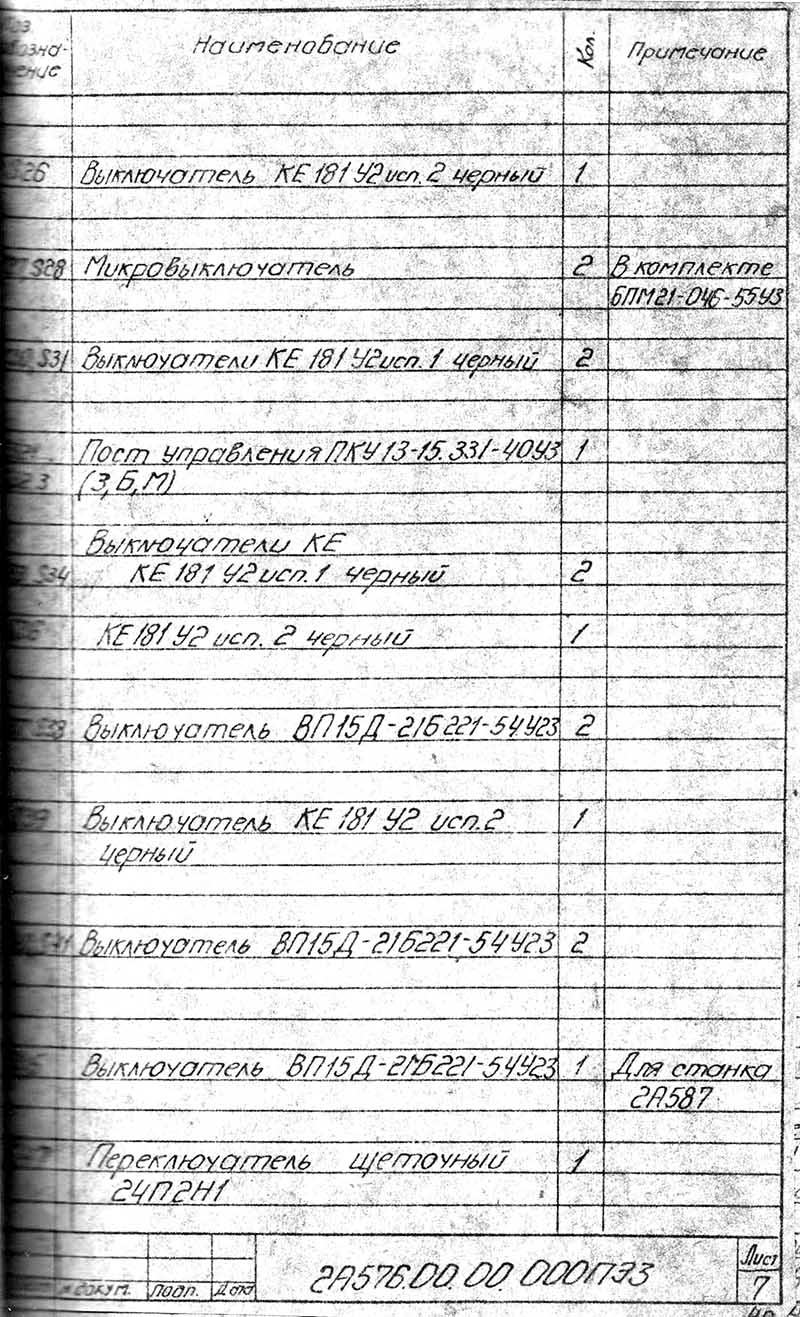 Наименование Кол. Примечание
S26 Выключатель КЕ 181 У2 исп. 2 черный 1
S28 Микровыключатель 2 В комплекте
БПМ21-046-55У3
S31 Выключатели КЕ 181 У2 исп. 1 черный 2
Пост управления ПКУ 13-15.331-40У3 1
(З, Б, М)
Выключатели КЕ
S34 КЕ 181 У2 исп. 1 черный 2
КЕ 181 У2 исп. 2 черный 1
Выключатель ВП15Д-21Б221-54У23 2
Выключатель КЕ 181 У2 исп. 2 1
черный
Выключатель ВП15Д-21Б221-54У23 2
Выключатель ВП15Д-21Б221-54У23 1 Для станка
2А587
Переключатель щеточный 1
24П2Н1
2А576.00.00.000ПЭ3 Лист
№ докум. Подп. Дата 7